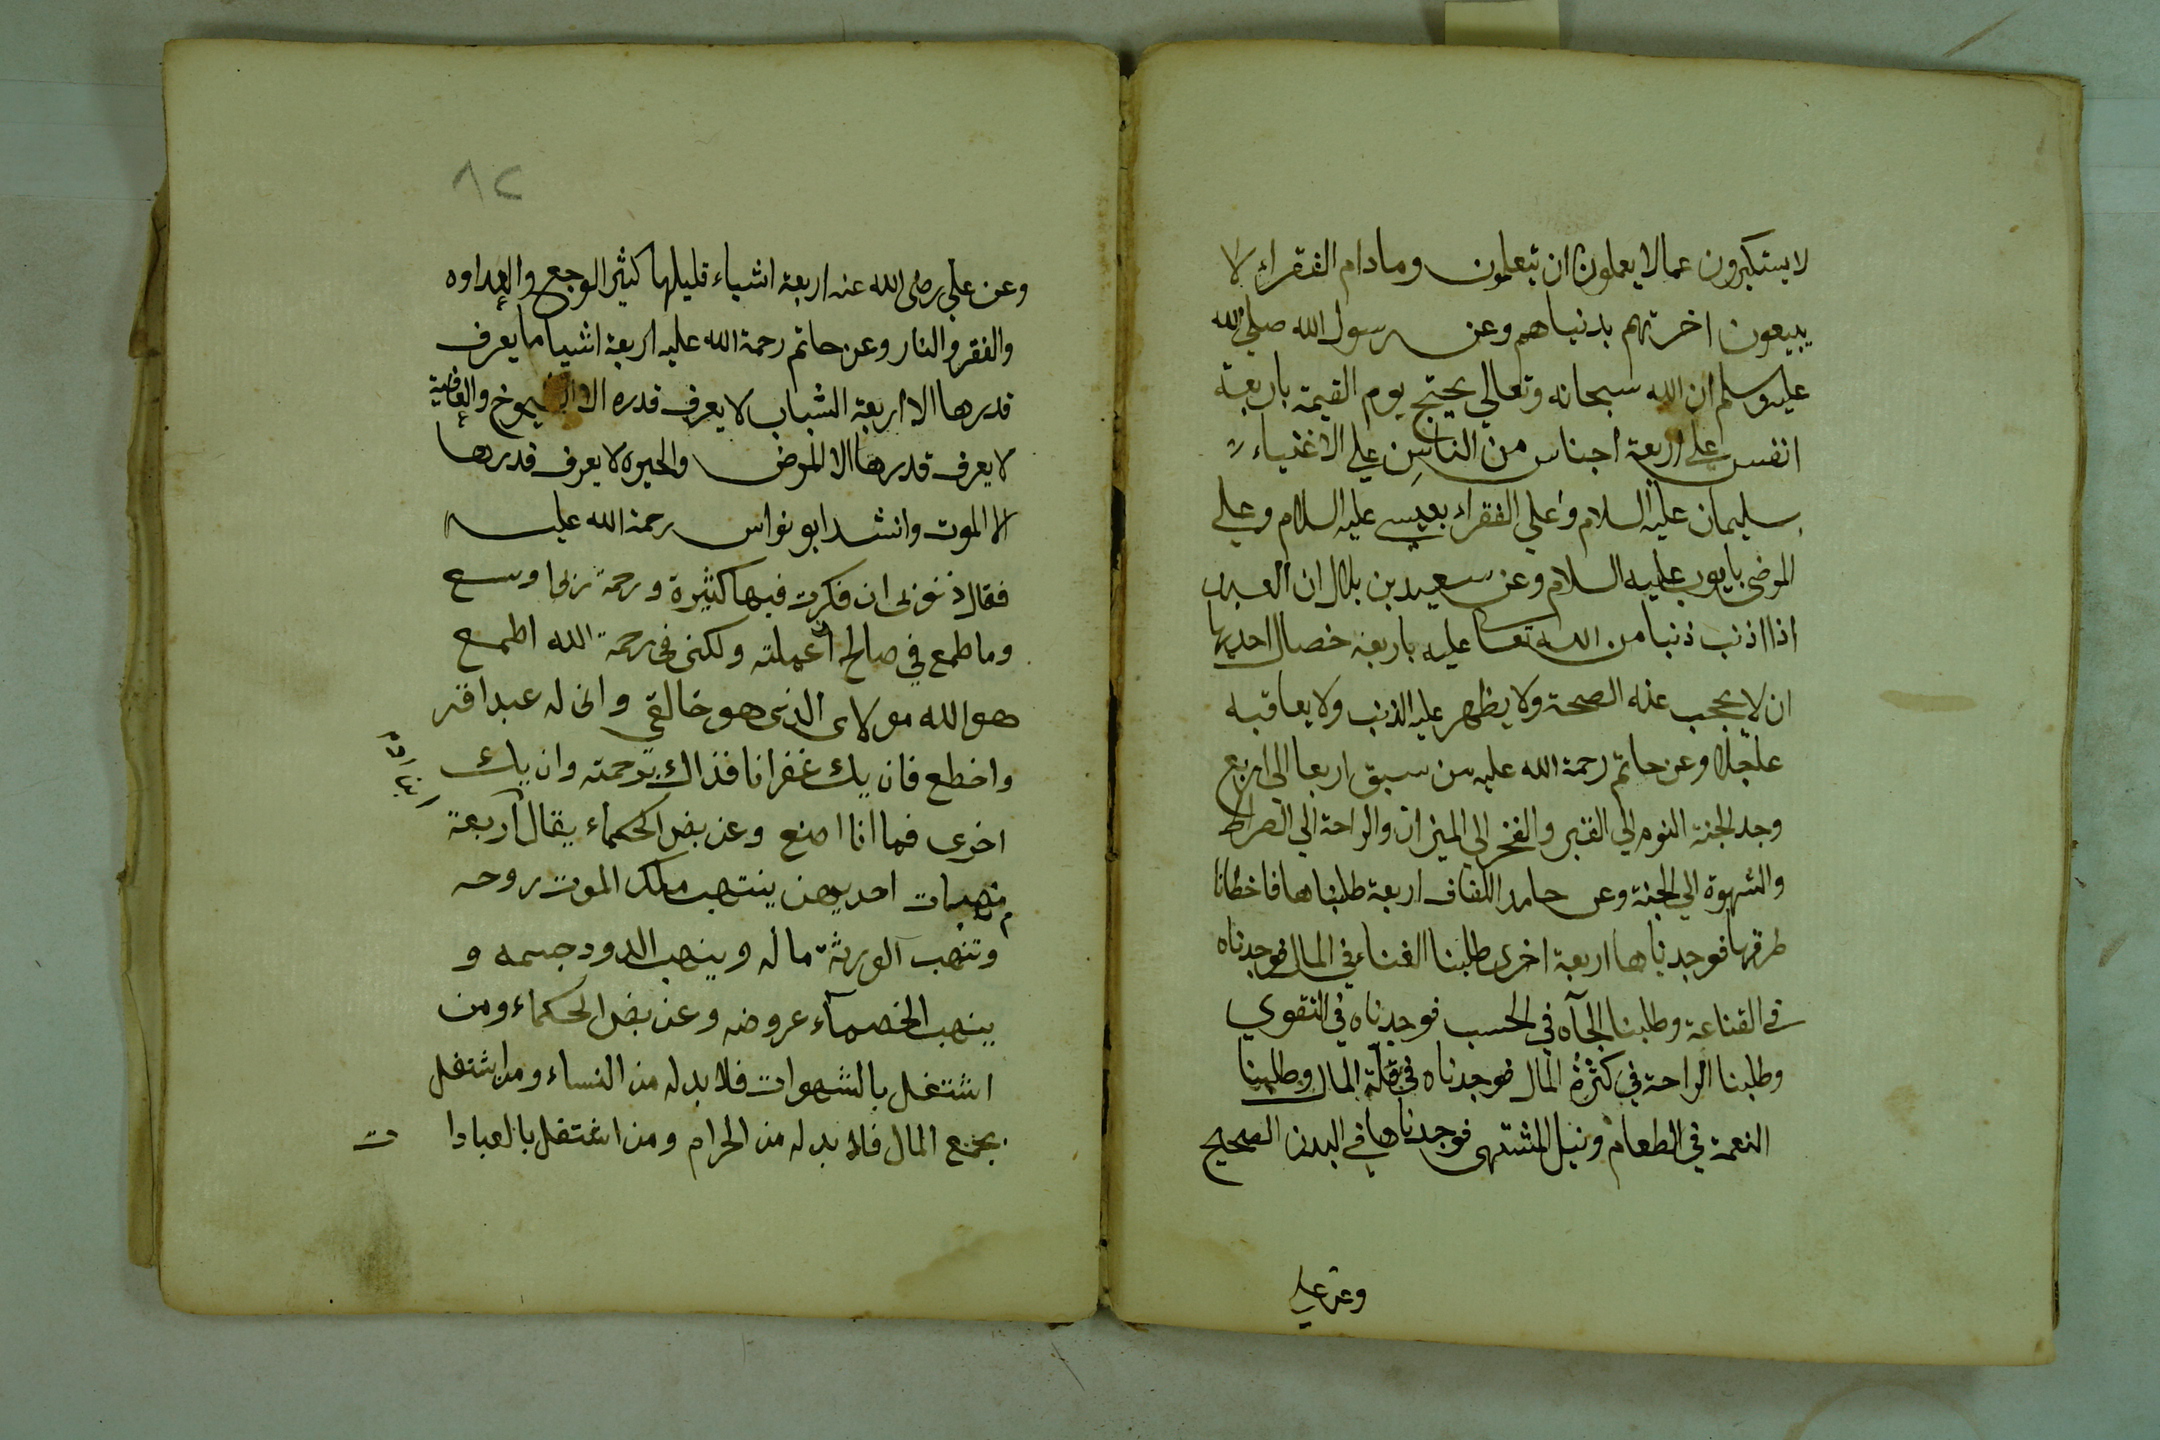 لا يستكبرون عما لا يعلمون ان يتعلمون وما دام الفقراء لا
يبيعون اخرتهم بدنياهم وعن رسول الله صلي الله
عليه وسلم ان الله سبحانه وتعالي يحتج يوم القيمة باربعة
انفس علي اربعة اجناس من الناس علي الاغنياء
سليمان عليه السلام وعلي الفقراء بعيسي عليه السلام وعلي
المرضي بايوب عليه السلام وعن سعيد بن بلال ان العبد
اذا اذنب ذنبا من الله تعا عليه باربعة خصال احديها
ان لا يحجب عنه الصحة ولا يظهر عليه الذنب ولا يعاقبه
علجلا وعن حاتم رحمة الله عليه من سبق اربعا الى اربع
وجد الجنة النوم الي القبر والفخر الي الميزان والراحة الي الصراط
والشهوة الي الجنة وعن حامد اللفاف اربعة طلبناها فاخطانا
طرقها فوجدناها اربعة اخرى طلبنا الغناء في المال فوجدناه
في القناعة وطلبنا الجآه في الحسب فوجدناه في التقوي
وطلبنا الراحة في كثرة المال فوجدناه في قلة المال وطلبنا
النعمة في الطعام ونيل المشتهى فوجدناها في البدن الصحيح
وعن علي
٨٢
وعن علي رضى الله عنه اربعة اشياء قليلها كثير الوجع والعداوه
والفقر والنار وعن حاتم رحمة الله عليه اربعة اشيا ما يعرف
قدرها الا اربعة الشباب لا يعرف قدره الا الشيوخ والعافية
لا يعرف قدرها الا المرضى والحيوه لا يعرف قدرها
الا الموت وانشد ابو نواس رحمة الله عليه
فقال ذنوبى ان فكرت فيها كثيرة ورحمة ربى اوسع
وما طمع في صالح اعملته ولكنى في رحمة الله اطمع
هو الله مولاى الذى هو خالقي وانى له عبد اقر
واخطع فان يك غفرانا فذاك برحمته وان يك
اخرى فما انا اصنع وعن بعض الحكماء يقال اربعة
منهبات احديهن ينتهب ملك الموت روحه
وتنهب الورثة ماله وينهب الدود جسمه و
ينهب الخصمآء عروضه وعن بعض الحكماء ومن
اشتغل بالشهوات فلا بد له من النساء ومن اشتغل
بجمع المال فلا بد له من الحرام ومن اشتغل بالعبادا
ت